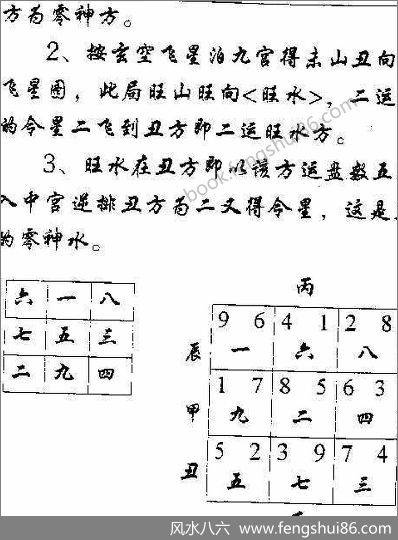 方为零神方。
2、按玄空飞星泊九宫得未山丑向
飞星图，此局旺山旺向<旺水>，二运
的令星二飞到丑方即二运旺水方。
3、旺水在丑方即以该方运盘数五
入中宫逆排丑方为二又得令星，这是
的零神水。
book.fengshui86.com
六 一 八
七 五 三
二 九 四
丙
9 6 4 1 2 8
辰 一 六 八
1 7 8 5 6 3
甲 九 二 四
5 2 3 9 7 4
丑 五 七 三
风水八六 www.fengshui86.com